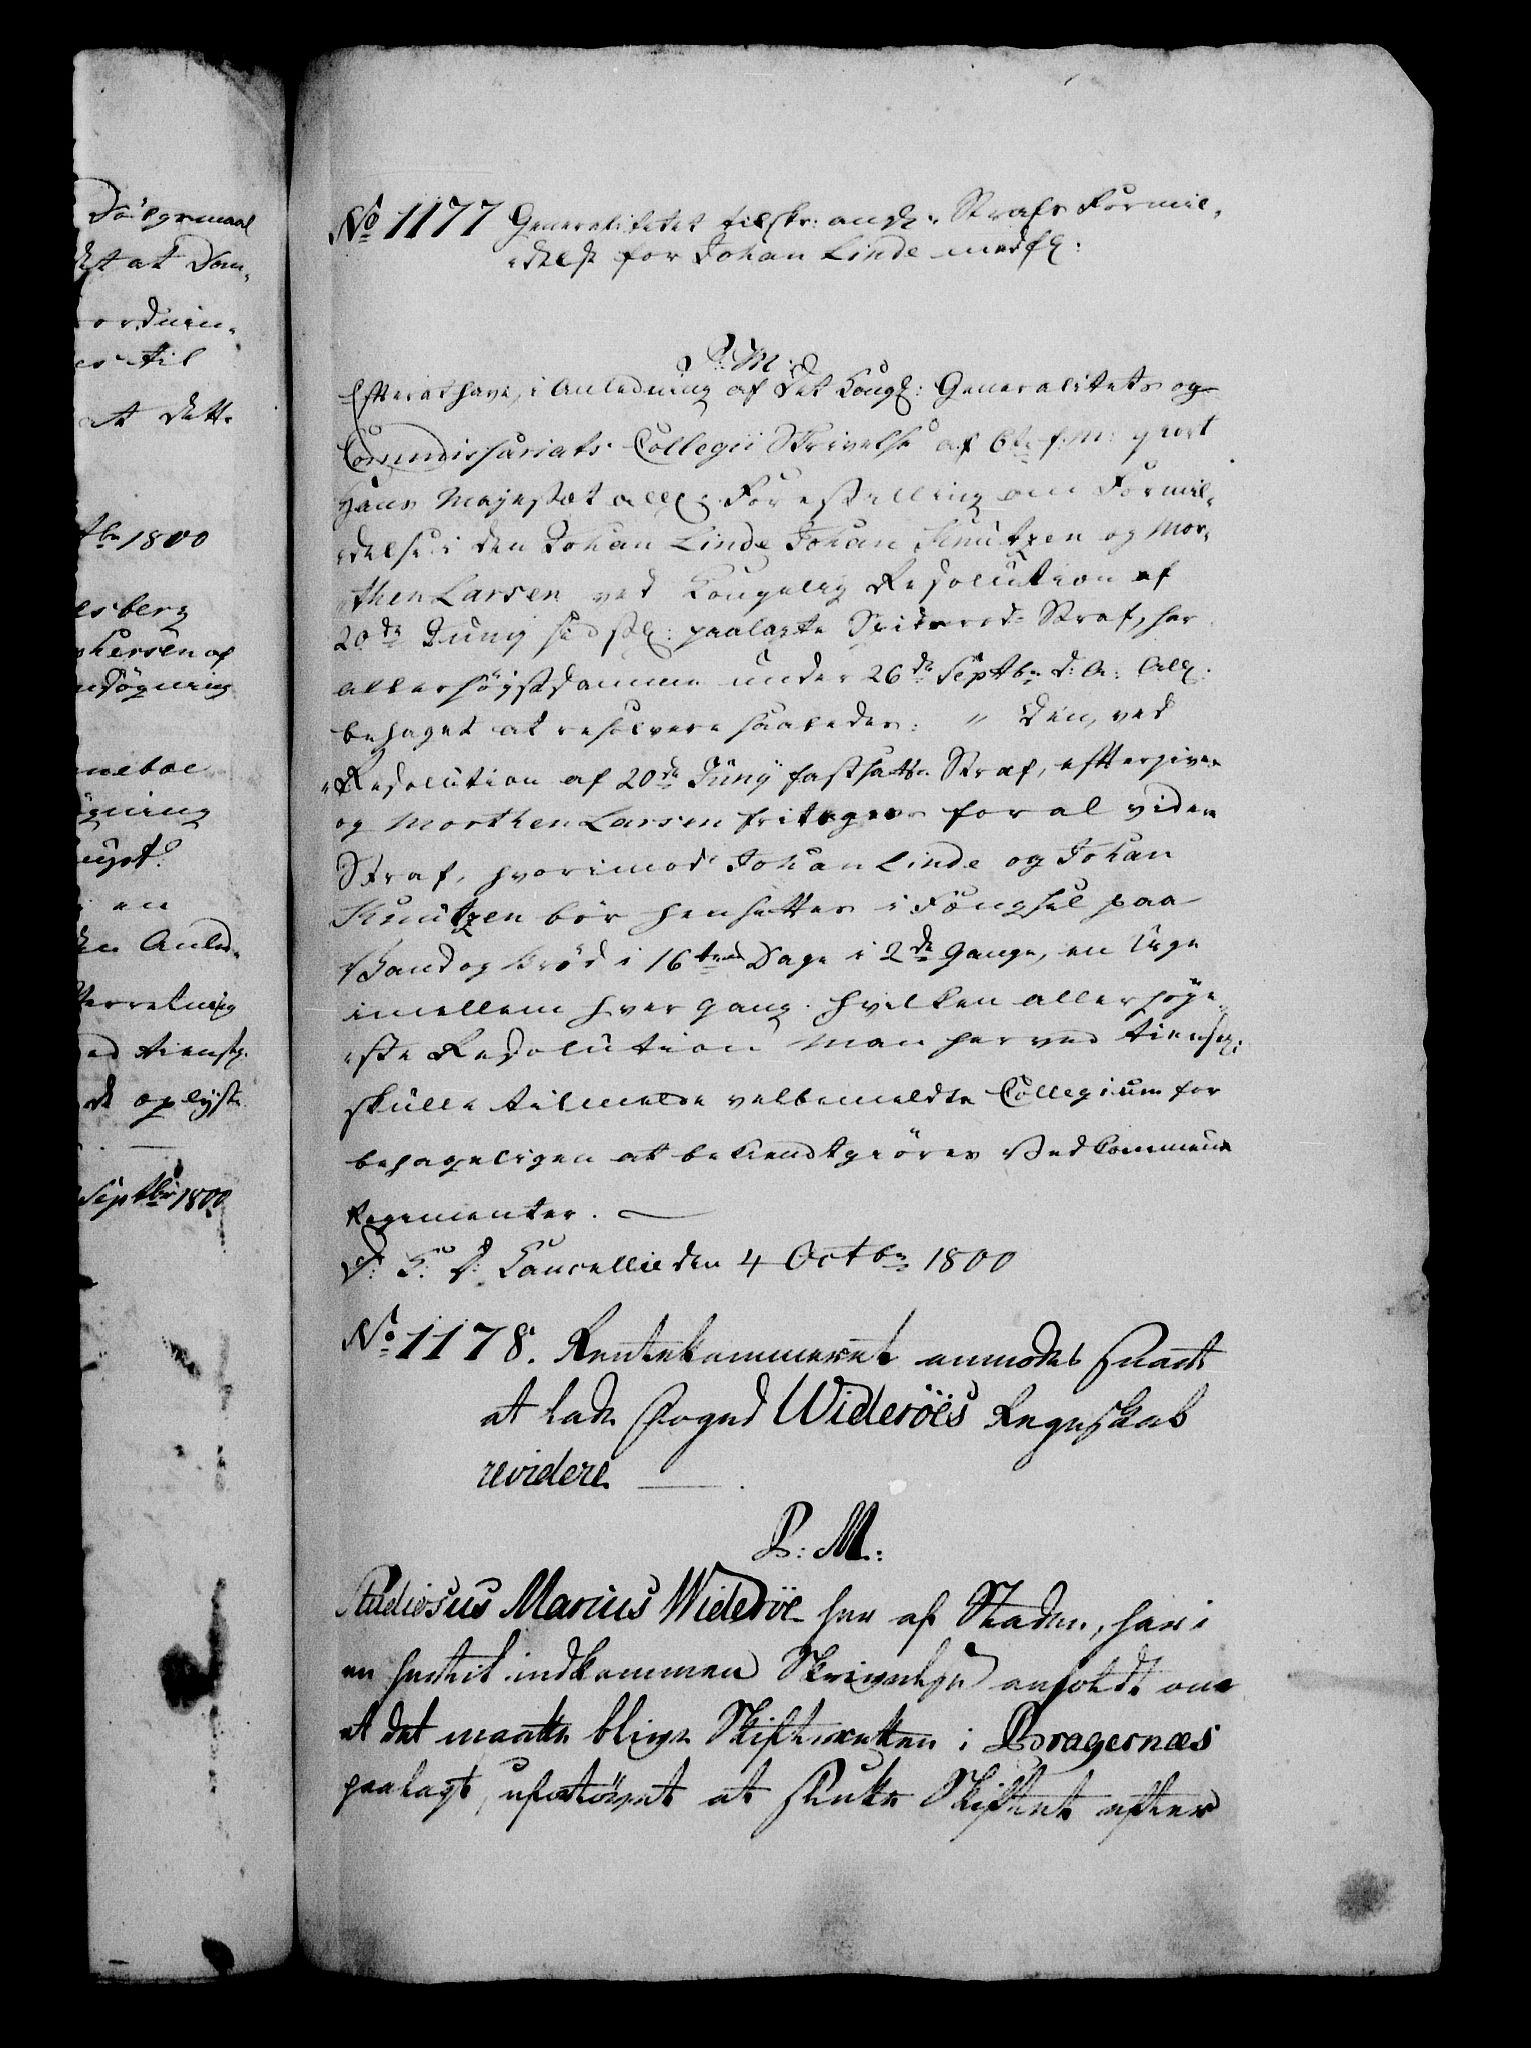 Dølgsmaal
det at Dom,
til
at dette
1800
esberg
phersen af
neboe
en
den Anled-
ved tienstl.
de oplyste
Septbr 1800
No 1177 Generalitetet tilskr: angl: Strafs Formil-
delse for Johan Linde medfl:
P: M:
Efter at have, i Anledning af det Kongl: Generalitets og
Commissariats Collegii Skrivelse af 6te f: M: giort
Hans Majestæt alll: Forestilling om Formil-
delse i den Johan Linde, Johan Knutzen og Mor-
then Larsen ved Kongelig Resolution af
20de Juny sidstl: paalagte Spidsrod-Straf, har
allerhøystsamme under 26de Septbr d: A: all:
behaget at resolvere saaledes: " Den, ved
"Resolution af 20de Juny fastsatte Straf, eftergives
og Morthen Larsen fritages for al videre
Straf, hvorimod Johan Linde og Johan
Knutzen bør hensættes i Fængsel paa
Vand og Brød i 16ten Dage i 2de Gange, en Uge
imellem hver Gang. Hvilken allerhøye-
ste Resolution man herved tienstl:
skulle tilmelde velbemeldte Collegium for
behageligen at bekiendtgiøres Vedkommende
Regimenter.
D: K: D: Cancellie den 4 Octbr 1800
No 1178. Rentekammeret anmodes snart
at lade Foged Wideröes Regnskab
revidere
P: M:
Studiosus Marius Wideröe her af Staden, har i
en hertil indkommen Skrivelse anholdt om
at det maatte blive Skifteretten i Bragernæs
paalagt, ufortøvet at slutte Skiftet efter